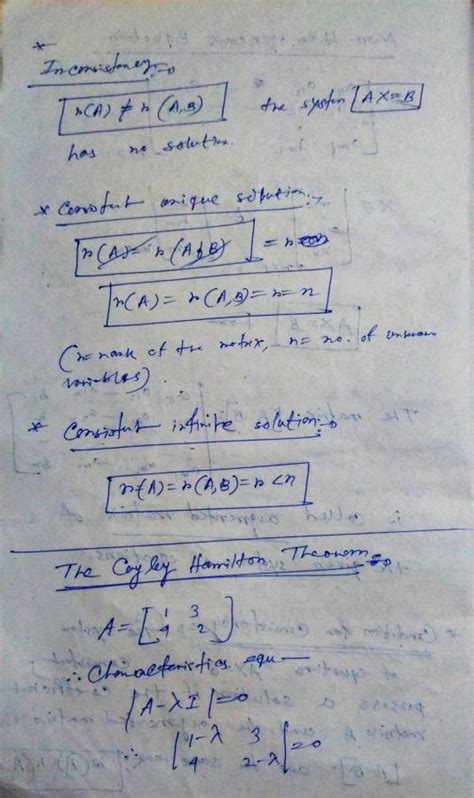 * Inconsistency:→
r(A) ≠ r(A,B) the system AX=B
has no solution.
* Consistent unique solution:→
r(A) = r(A,B) = r
r(A) = r(A,B) = r = n
(r = rank of the matrix, n = no. of unknown
variables).
* Consistent infinite solution:→
r(A) = r(A,B) = r < n
The Cayley Hamilton Theorem:→
A = [1 3
4 2]
∴ Characteristics equ—
|A-λI| = 0
∴ |1-λ 3
4 2-λ| = 0